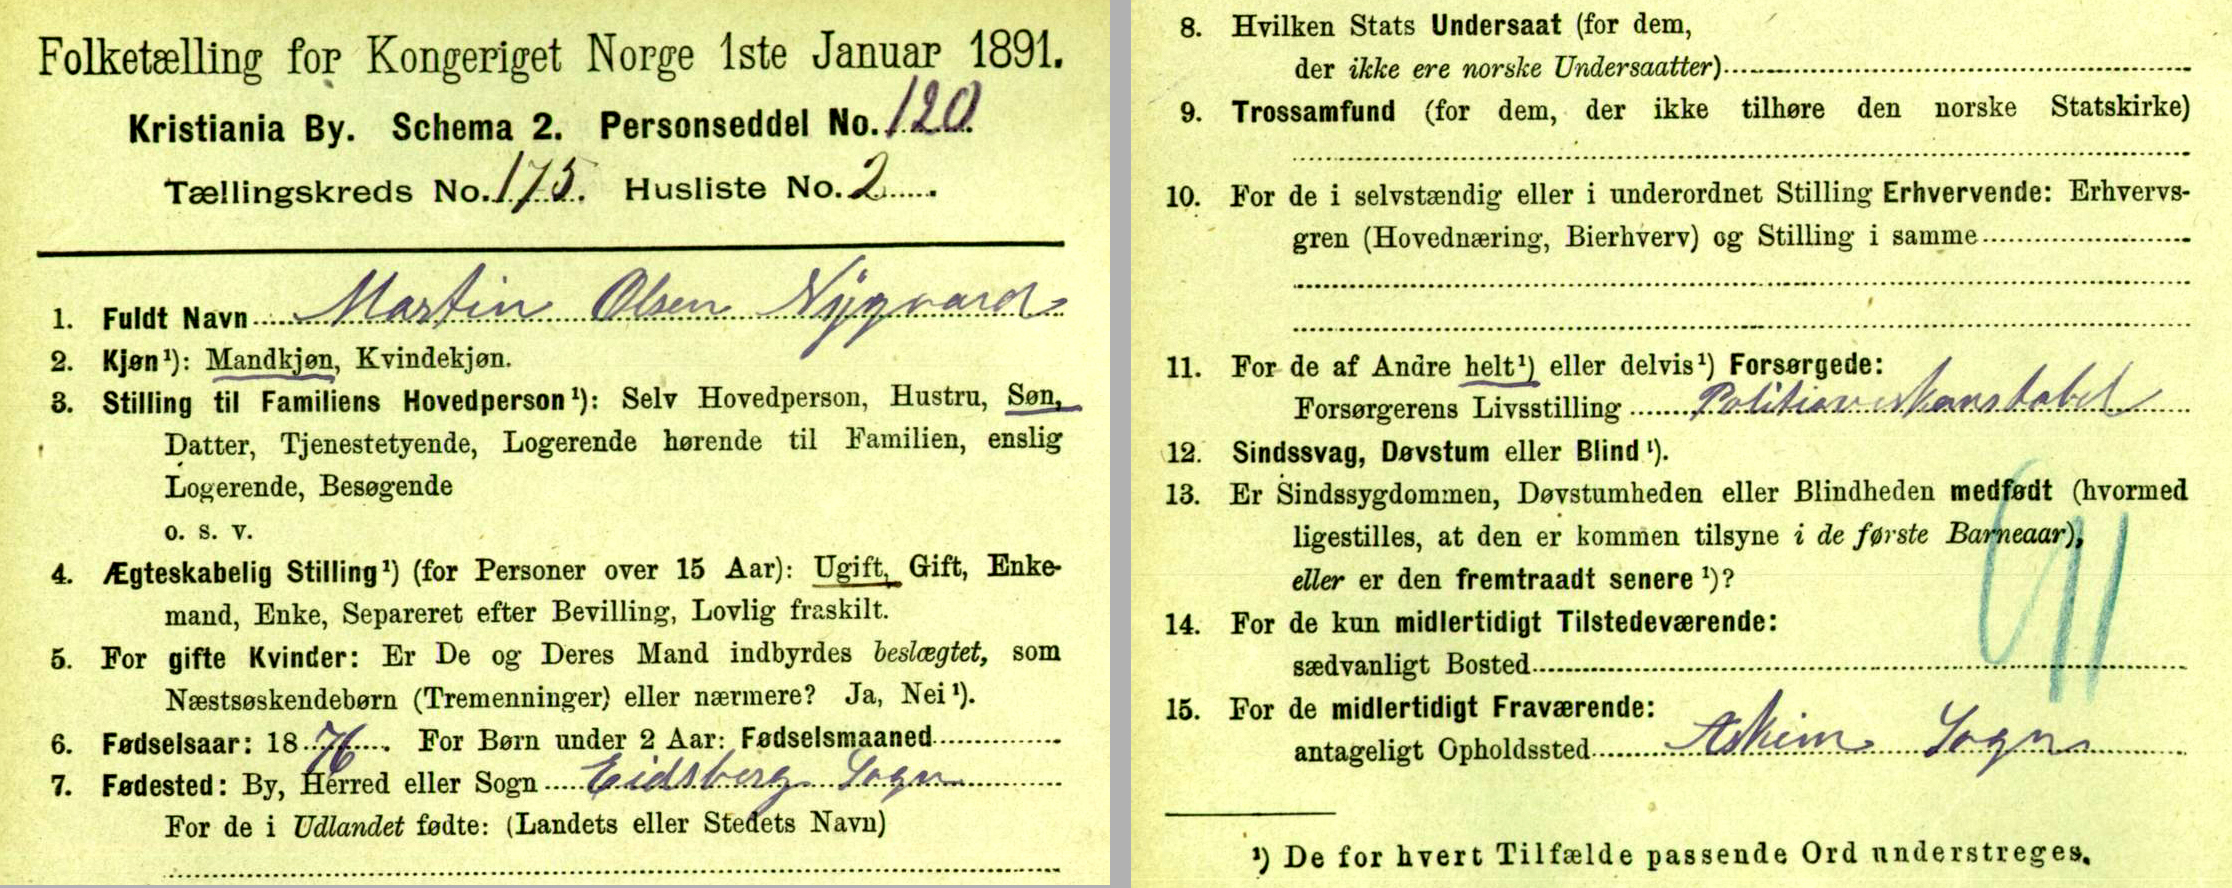 Folketælling for Kongeriget Norge 1ste Januar 1891.
Kristiania By. Schema 2. Personseddel No. 120
Tællingskreds No. 175. Husliste No. 2.
1. Fuldt Navn Martin Olsen Nygaard
2. Kjøn¹): Mandkjøn, Kvindekjøn.
3. Stilling til Familiens Hovedperson¹): Selv Hovedperson, Hustru, Søn,
Datter, Tjenestetyende, Logerende hørende til Familien, enslig
Logerende, Besøgende
o. s. v.
4. Ægteskabelig Stilling¹) (for Personer over 15 Aar): Ugift, Gift, Enke-
mand, Enke, Separeret efter Bevilling, Lovlig fraskilt.
5. For gifte Kvinder: Er De og Deres Mand indbyrdes beslægtet, som
Næstsøskendebørn (Tremenninger) eller nærmere? Ja, Nei¹).
6. Fødselsaar: 1876. For Børn under 2 Aar: Fødselsmaaned
7. Fødested: By, Herred eller Sogn Eidsberg Sogn
For de i Udlandet fødte: (Landets eller Stedets Navn)
8. Hvilken Stats Undersaat (for dem,
der ikke ere norske Undersaatter)
9. Trossamfund (for dem, der ikke tilhøre den norske Statskirke)
10. For de i selvstændig eller i underordnet Stilling Erhvervende: Erhvervs-
gren (Hovednæring, Bierhverv) og Stilling i samme
11. For de af Andre helt¹) eller delvis¹) Forsørgede:
Forsørgerens Livsstilling Politioverkonstabel
12. Sindssvag, Døvstum eller Blind¹).
13. Er Sindssygdommen, Døvstumheden eller Blindheden medfødt (hvormed
ligestilles, at den er kommen tilsyne i de første Barneaar),
eller er den fremtraadt senere¹)?
14. For de kun midlertidigt Tilstedeværende:
sædvanligt Bosted
15. For de midlertidigt Fraværende:
antageligt Opholdssted Askim Sogn
¹) De for hvert Tilfælde passende Ord understreges.